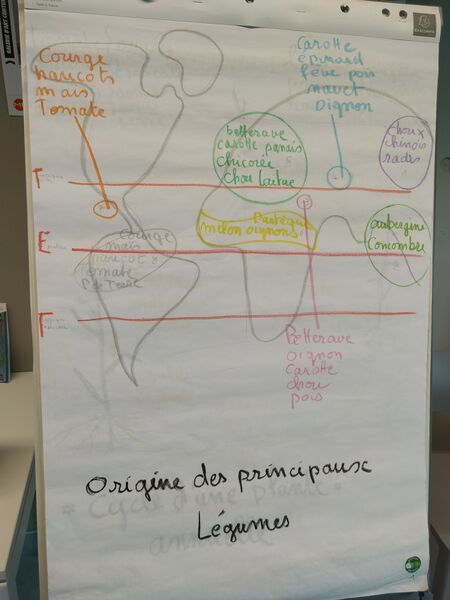 Courge
haricots
maïs
Tomate
Carotte
épinard
fève pois
navet
oignon
betterave
carotte panais
chicorée
chou laitue
choux
chinois
radis
T
Pastèque
melon oignons
aubergine
concombre
E
Courge
maïs
haricots
Tomate
P de Terre
T
Betterave
oignon
carotte
chou
pois
Origine des principaux
Légumes
Cycle d'une plante
annuelle